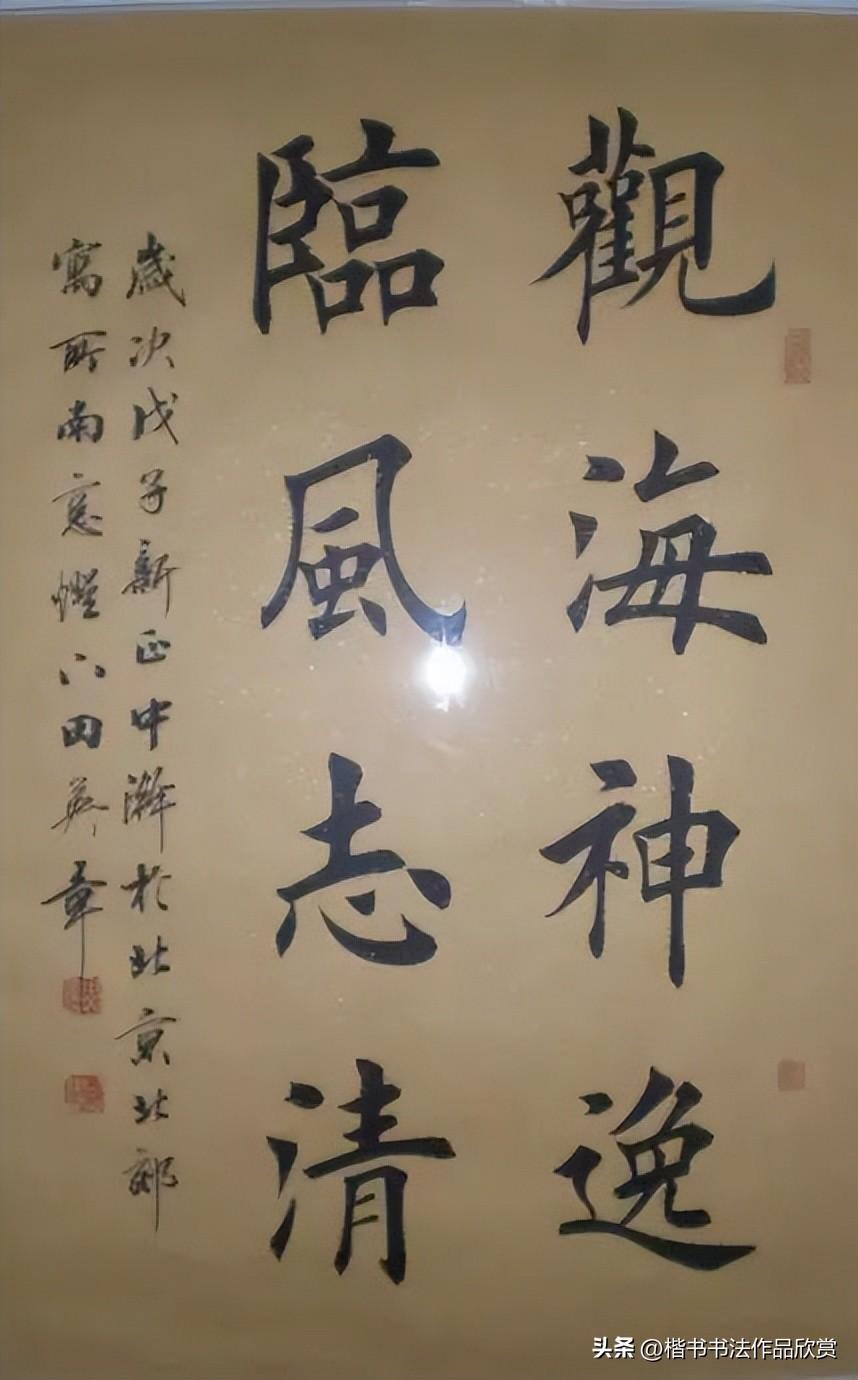 觀海神逸
臨風志清
歲次戊子新正中澣於北京北郊
寫所南意燈下田英章
头条 @楷书书法作品欣赏